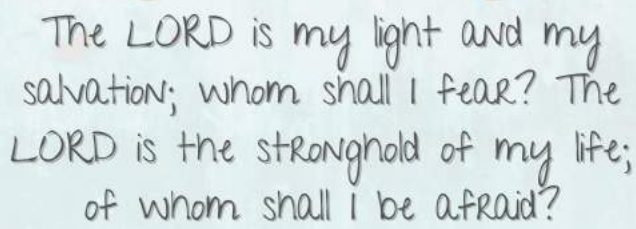 The LORD is my light and my
salvation; whom shall I fear? The
LORD is the stronghold of my life;
of whom shall I be afraid?